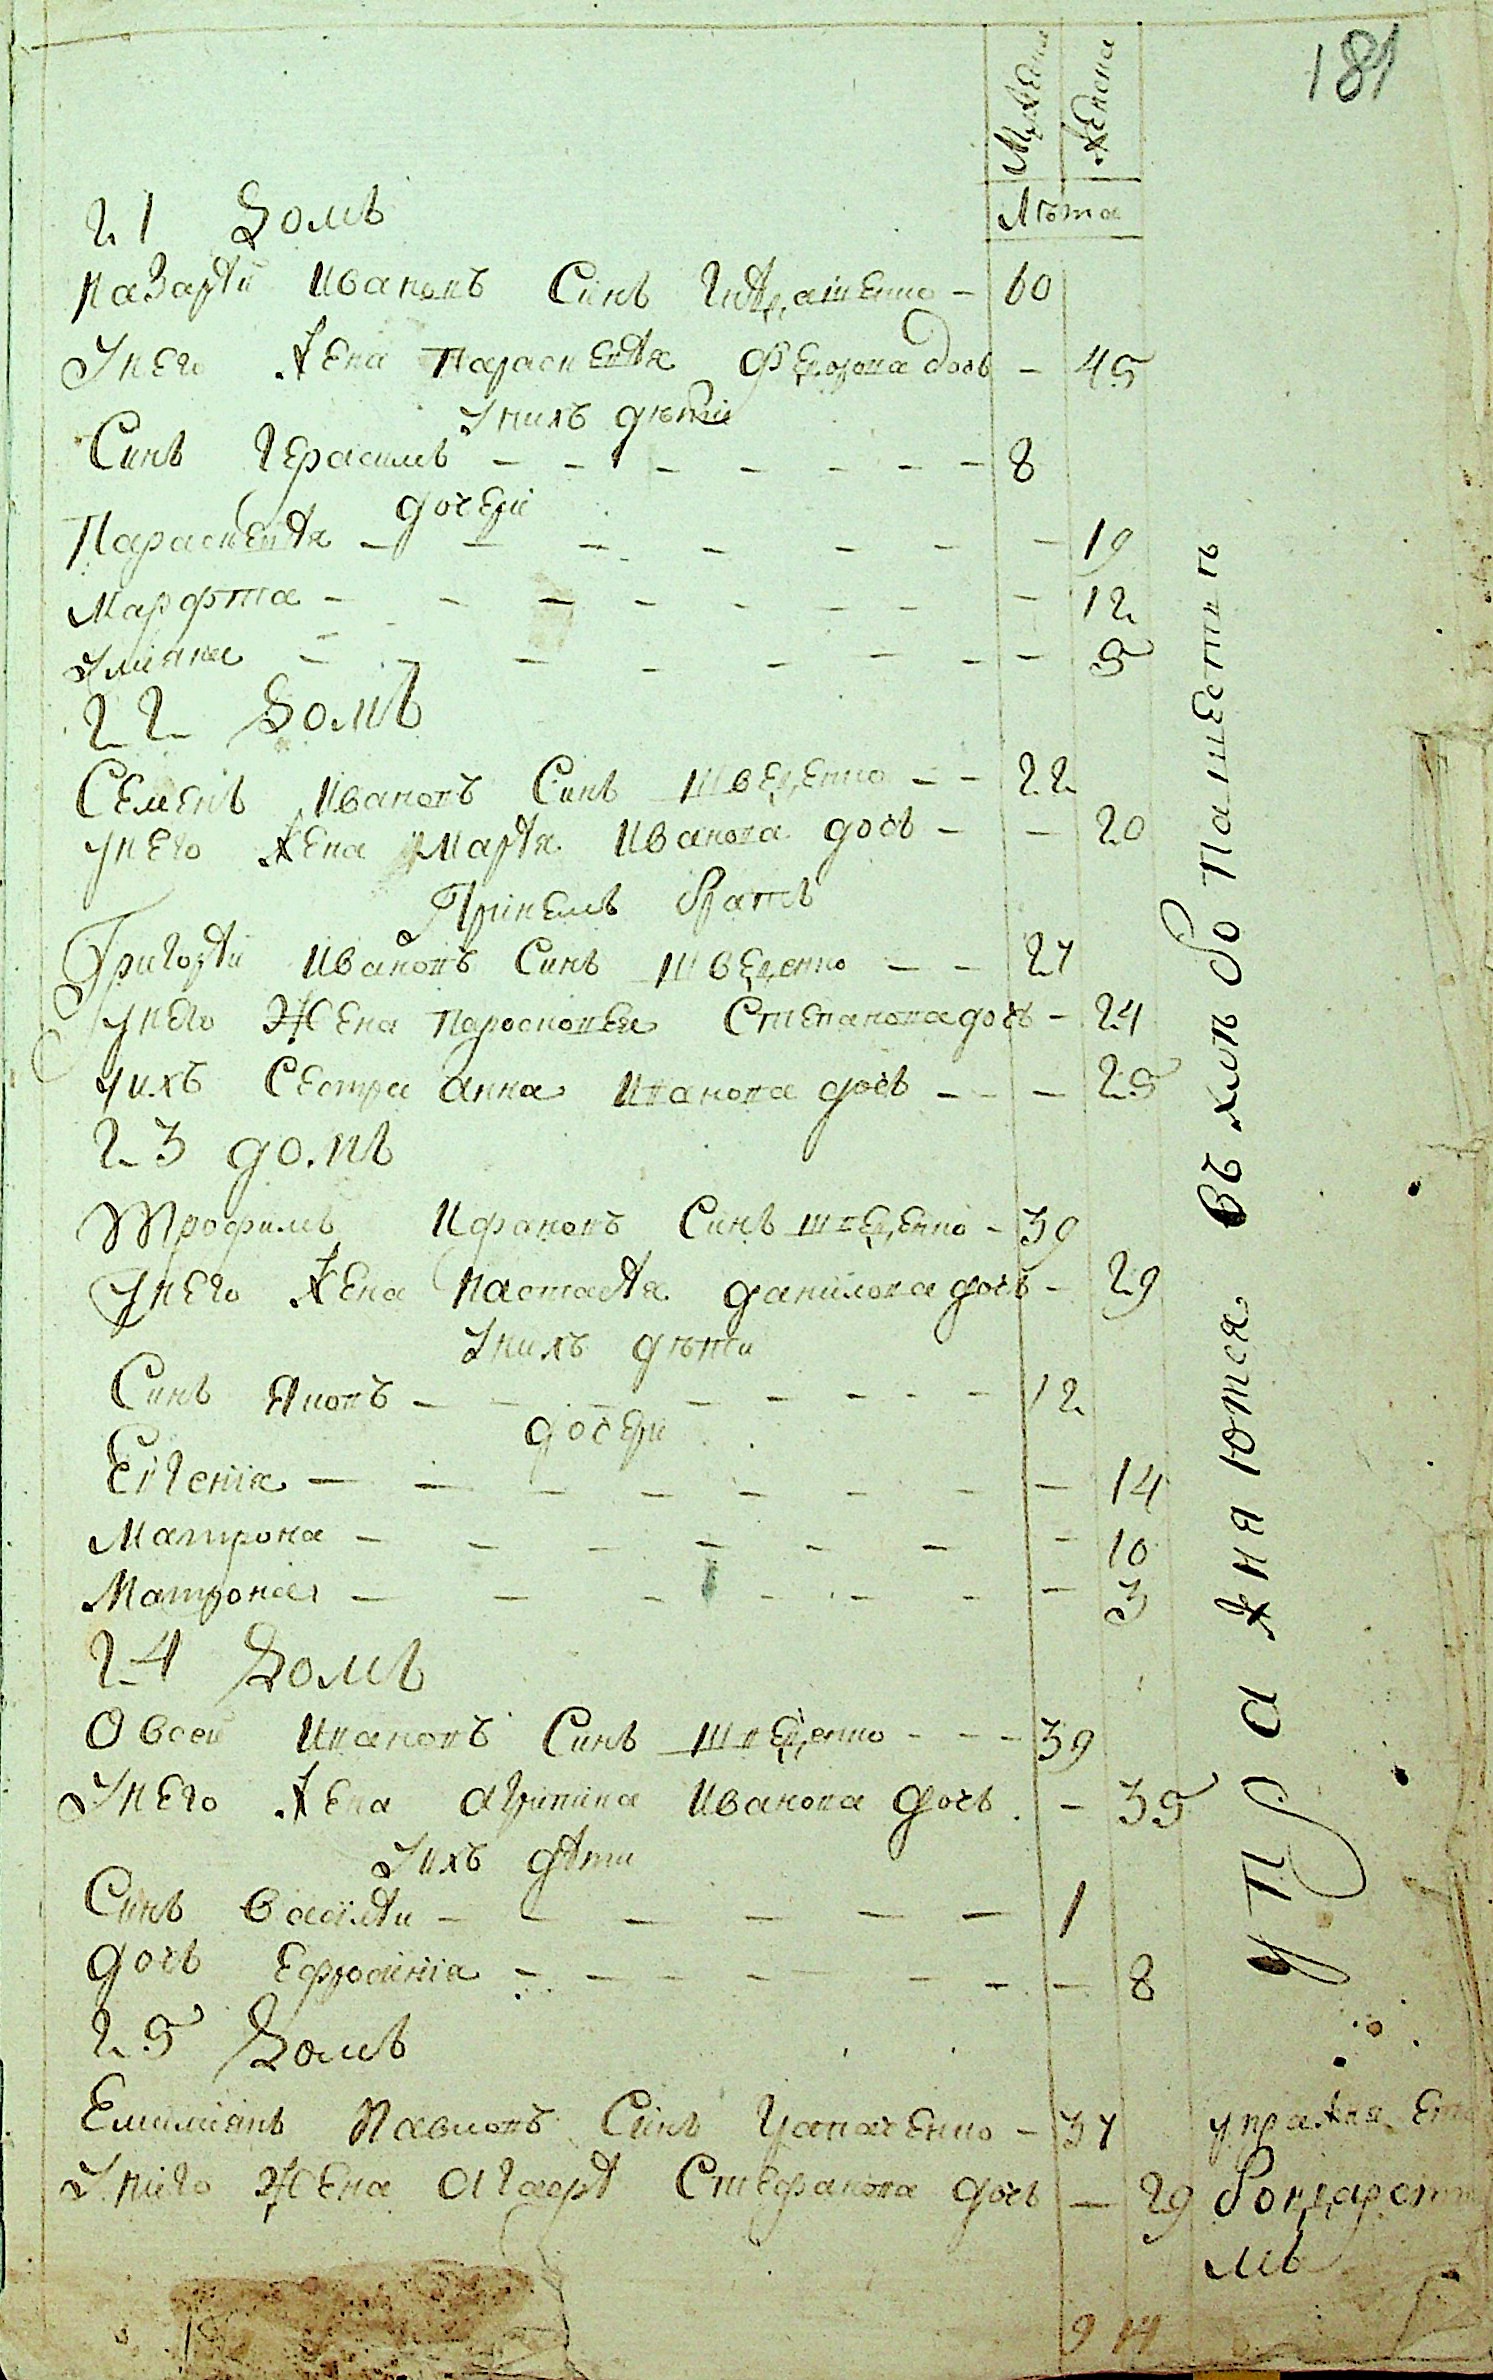 181
Мужеска Женска
Лѣта
21 Домъ
Назарій Ивановъ Синъ 60
Унего Жена Параскевія Федорова дочь 45
Унихъ дѣти
Синъ Герасимъ 8
дочери
Параскевія 19
Марфта 12
Уліяна 5
22 Домъ
Семенъ Ивановъ Синъ Шведенко 22
Унего Жена Марія Иванова дочь 20
братъ
Григорій Ивановъ Синъ Шведенко 27
унего Жена Паросковея Степанова дочь 24
уихъ Сестра анна Иванова дочь 25
23 домъ
Трофимъ Ифановъ Синъ Шведенко 39
Унего Жена Настасія данилова дочь 29
Унихъ дѣти
Синъ Яковъ 12
дочери
Евгенія 14
Матрона 10
Матрона 3
24 Домъ
Овсей Ивановъ Синъ Шведенко 39
Унего Жена агрипина Иванова дочь 35
Уихъ діти
Синъ Василій 1
дочь Ефросинія 8
25 Домъ
Емилиянъ Павловъ Синъ Цапаченко 37
Унего Жена агафі Стефанова дочь 29
9 14
упражняются въ хлѣбопашествѣ
упражняет
бондарств
мъ